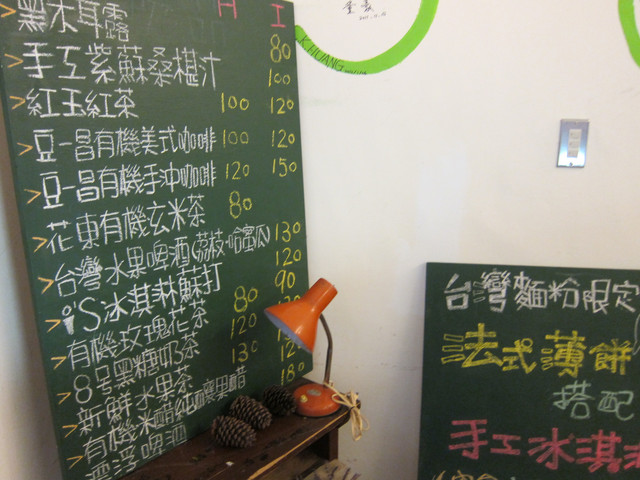 H I
>黑木耳露 80
>手工紫蘇桑椹汁 100
>紅玉紅茶 100 120
>豆一昌有機美式咖啡 100 120
>豆一昌有機手沖咖啡 120 150
>花東有機玄米茶 80
>台灣水果啤酒(荔枝·哈蜜瓜) 130
>i'S冰淇淋蘇打 120
>有機玫瑰花茶 80 90
>8号黑糖奶茶 120
>新鮮水果茶 130
>有機米醋純釀果醋
漂浮啤酒 180
KHUANG
台灣麵粉限定
法式薄餅
搭配
手工冰淇淋